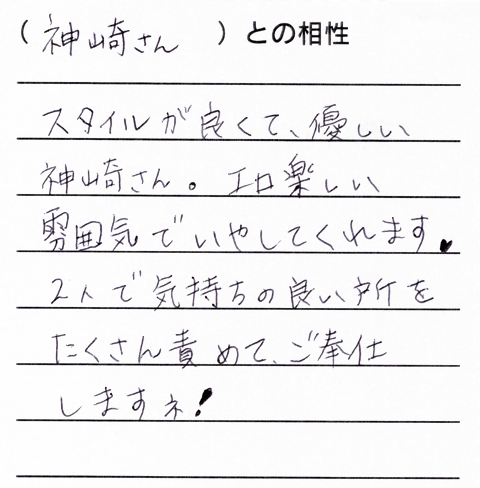 (神崎さん)との相性
スタイルが良くて、優しい
神崎さん。エロ楽しい
雰囲気でいやしてくれます♥
2人で気持ちの良い所を
たくさん責めて、ご奉仕
しますネ!